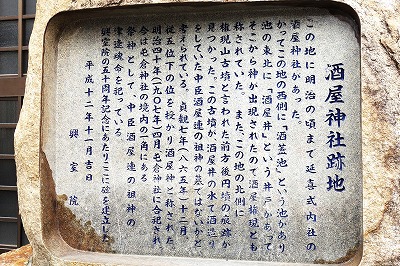 酒屋神社跡地
この地に明治の頃まで延喜式内社の
酒屋神社があった。
かつてこの地の西側に「酒蓋池」という池があり
池の東北に「酒屋井」という井戸があって
そこから神が出現されたので酒屋権現とも
称されていた。また、この地の北側に
権現山古墳と言われた前方後円墳の痕跡が
見つかった。この古墳が、酒屋井の水で酒造り
をしていた中臣酒屋連の祖神の墓ではないかと
考えられている。貞観七年(八六五年)十二月
従五位下の位を授かり酒屋神と称された。
明治四十年(一九〇七年)四月屯倉神社に合祀され
今は屯倉神社の境内の一角にある
祭神として、中臣酒屋連の祖神の
津速魂命を祀っている
興室院の五十周年記念にあたりここに碑を建立した
平成十二年十一月吉日
興室院